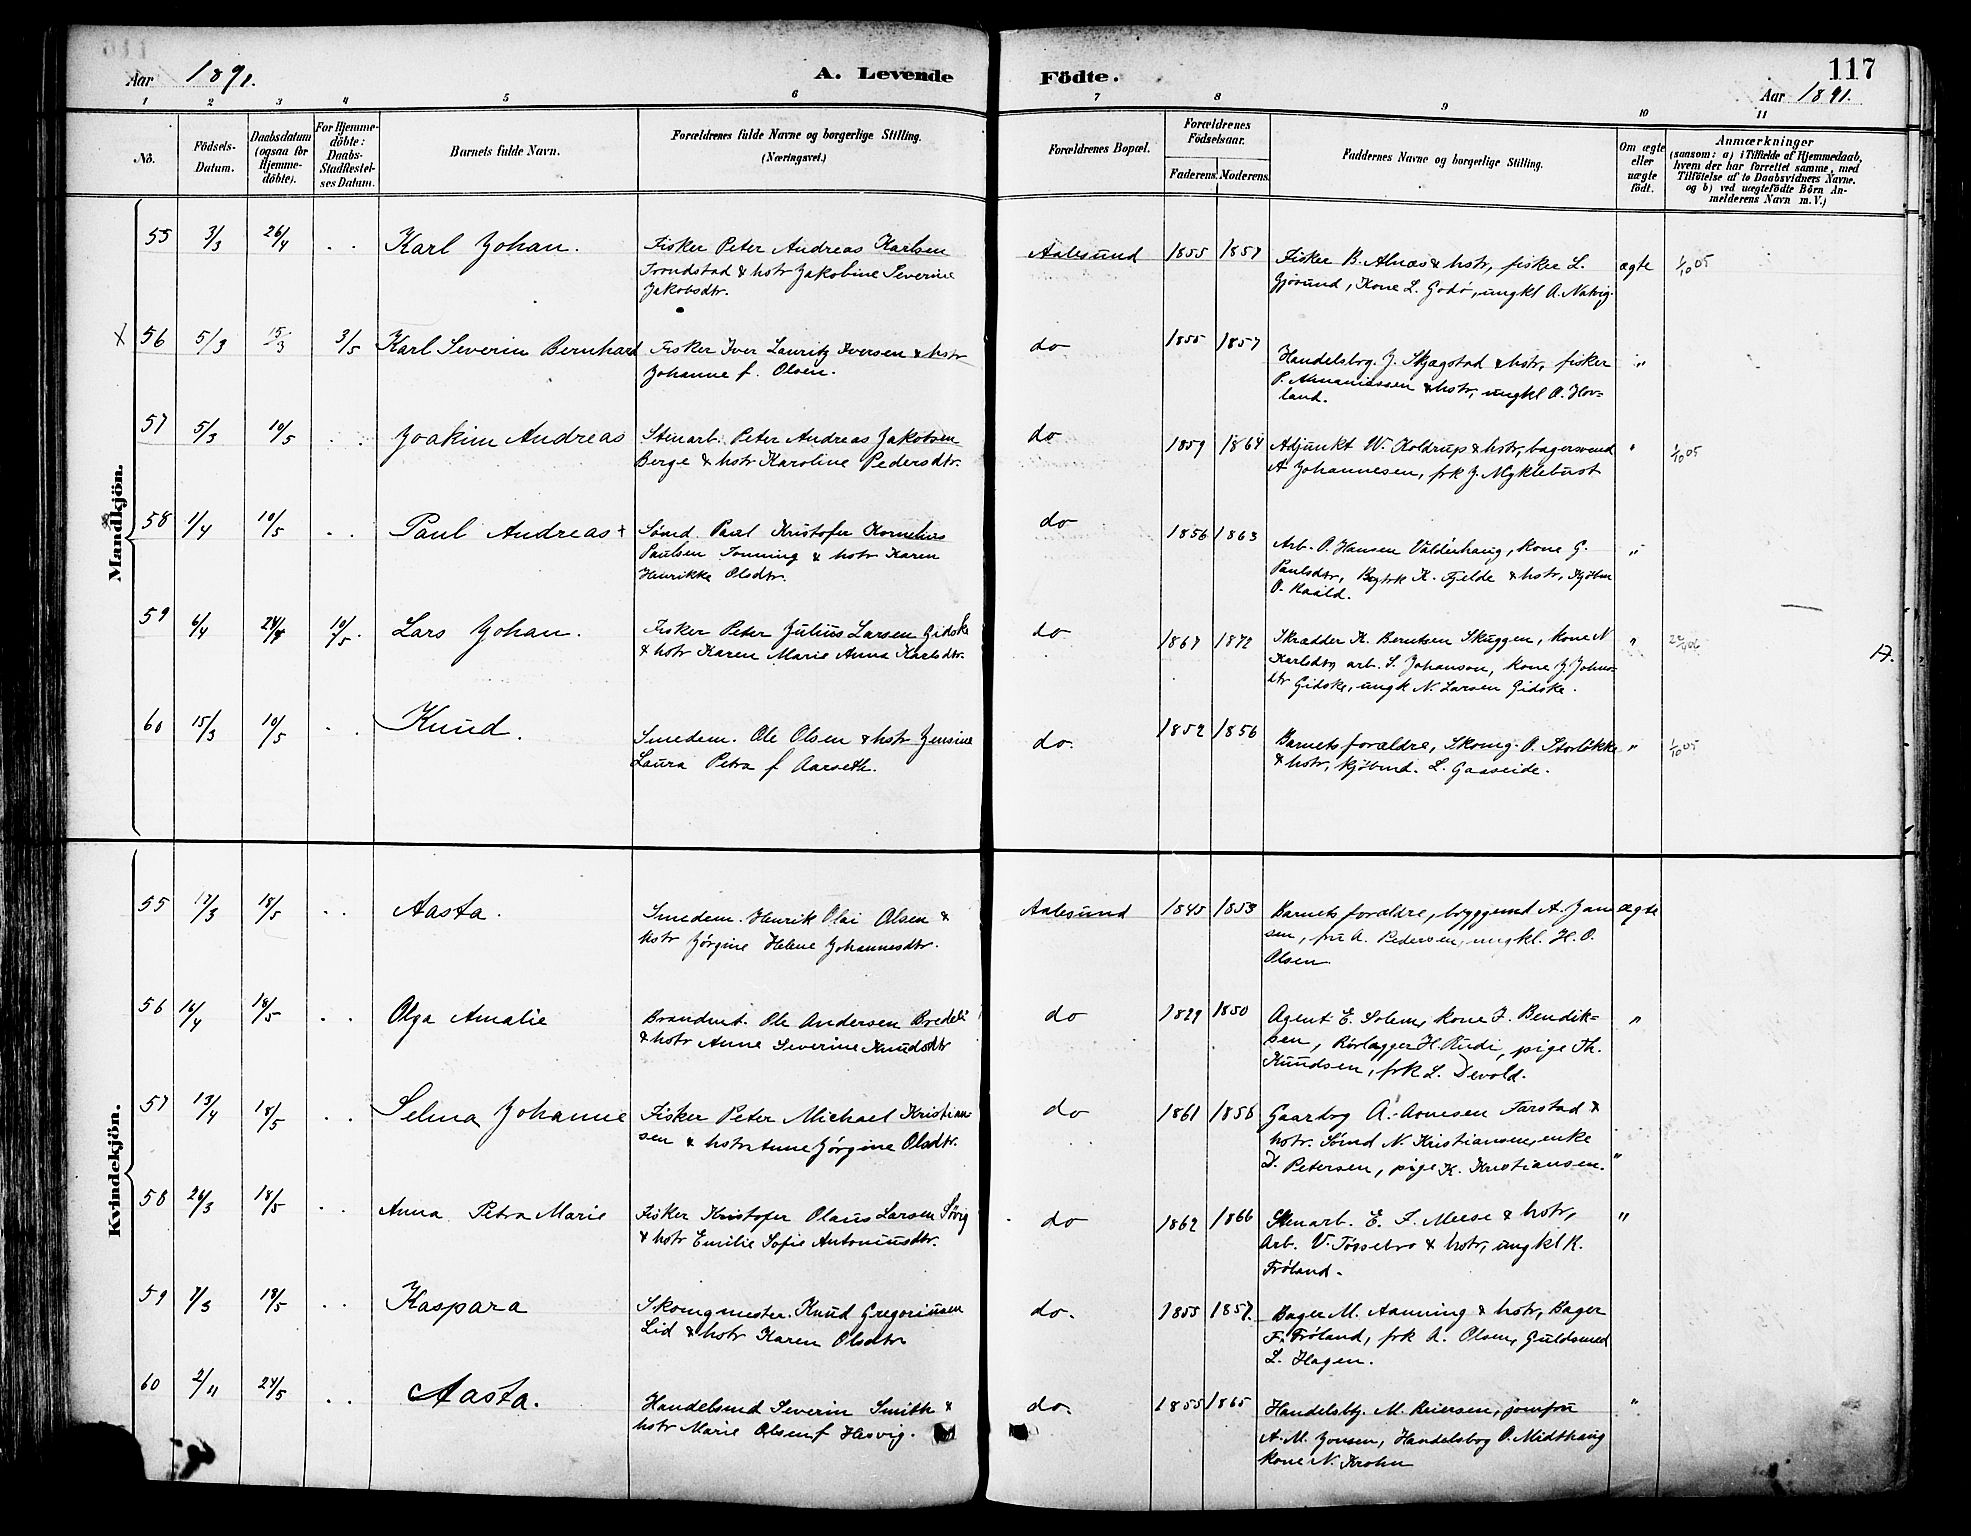 Aar 1891. A. Levende Fødte. 117
Aar 1891.
1 2 3 4 5 6 7 8 9 10 11
No.
Födsels-Datum.
Daabsdatum (ogsaa for Hjemme-döbte).
For Hjemme-döbte: Daabs-Stadfæstel-ses Datum.
Barnets fulde Navn.
Forældrenes fulde Navne og borgerlige Stilling.
(Næringsvei.)
Forældrenes Bopæl.
Forældrenes Födselsaar.
Faderens. Moderens.
Faddernes Navne og borgerlige Stilling.
Om ægte eller uægte födt.
Anmærkninger
(saasom: a) i Tilfælde af Hjemmedaab,
hvem der har forrettet samme, med
Tilföielse af to Daabsvidners Navne,
og b) ved uægtefödte Börn An-
melderens Navn m. V.)
Mandkjön.
55 3/3 26/4 . . Karl Johan. Fisker Peter Andreas Karlsen
Trondstad & hstr Jakobine Severine
Jakobsdtr.
Aalesund 1855 1857 Fisker B. Alnæs & hstr, fisker L.
Gjørund, Kone L. Godø, ungkl A. Natvig.
ægte 1/10 05
x 56 5/3 15/3 3/5 Karl Severin Bernhard Fisker Iver Lauritz Iversen & hstr
Johanne f. Olsen.
do 1855 1857 Handelsbrg. J. Skjegstad & hstr, fisker
P. Ananiassen & hstr, ungkl O. Hov-
land.
"
57 5/3 10/5 . . Joakim Andreas Stenarb. Peter Andreas Jakobsen
Berge & hstr Karoline Pedersdtr.
do 1859 1864 Adjunkt W. Koldrup & hstr, bagersvend
A Johannesen, frk J. Myklebust
" 1/10 05
58 1/4 10/5 . . Paul Andreas + Sømd. Paul Kristofer Kornelius
Paulsen Tonning & hstr Karen
Henrikke Olsdtr.
do 1856 1863 Arb. O. Hansen Valderhaug, kone G.
Paulsdtr, Bogtrk K. Fjelde & hstr, Kjøbm
O. Raald.
"
59 6/4 24/4 10/5. Lars Johan. Fisker Peter Julius Larsen Gidske
& hstr Karen Marie Anna Karlsdtr.
do 1867 1872 Skrædder K. Berntsen Skuggen, kone N
Karlsdtr, arb. S. Johanson, kone J. Johns-
dtr Gidske, ungk N. Larsen Gidske.
"
60 15/3 10/5 . . Knud. Smedem. Ole Olsen & hstr Jensine
Laura Petra f Aarseth.
do. 1852 1856 Barnets forældre, Skomg. O. Storløkke
& hstr, kjøbmd. L. Gaaseide.
" 1/10 05
Kvindekjön.
55 17/3 18/5 . . Aasta. Smedem. Henrik Olai Olsen &
hstr Jørgine Helene Johannesdtr.
Aalesund 1845 1853 Barnets forældre, byggemd A. Jan-
sen, fru A. Pedersen, ungkl. H. O.
Olsen.
ægte
56 16/4 18/5 . . Olga Amalie Brandmt. Ole Andersen Bredeli
& hstr Anne Severine Knudsdtr
do 1829 1850 Agent E. Solem, kone J. Bendik-
sen, Rørlægger H. Rudi, pige Th.
Knudsen, frk L. Devold.
"
57 13/4 18/5 . . Selma Johanne Fisker Peter Michael Kristian-
sen & hstr Anne Jørgine Olsdtr.
do 1861 1856 Gaardbrg A. Arnesen Farstad &
hstr. Sømd N. Kristiansen, enke
D. Petersen, pige K. Kristiansen.
"
58 26/3 18/5 . . Anna Petra Marie Fisker Kristofer Olaus Larsen Søvig
& hstr Emilie Sofie Antoniusdtr.
do 1862 1866 Stenarb. E. F. Meese & hstr,
Arb. V. Tossebro & hstr, ungkl K.
Frøland.
"
59 7/3 18/5 . . Kaspara Skomgmester. Knud Gregoriusen
Lid & hstr Karen Olsdtr
do. 1855 1857. Bager M. Aanning & hstr, Bager
F. Frøland, frk A. Olsen, Guldsmed
L. Hagen.
60 2/11 24/5 . . Aasta. Handelsmd Severin Smith &
hstr Marie Olsen f Hesvig.
do. 1855 1865 Handelsbtj. M. Reiersen, jomfru
A. M. Jonsen, Handelsbog O. Midthaug
kone N. Krohn
"